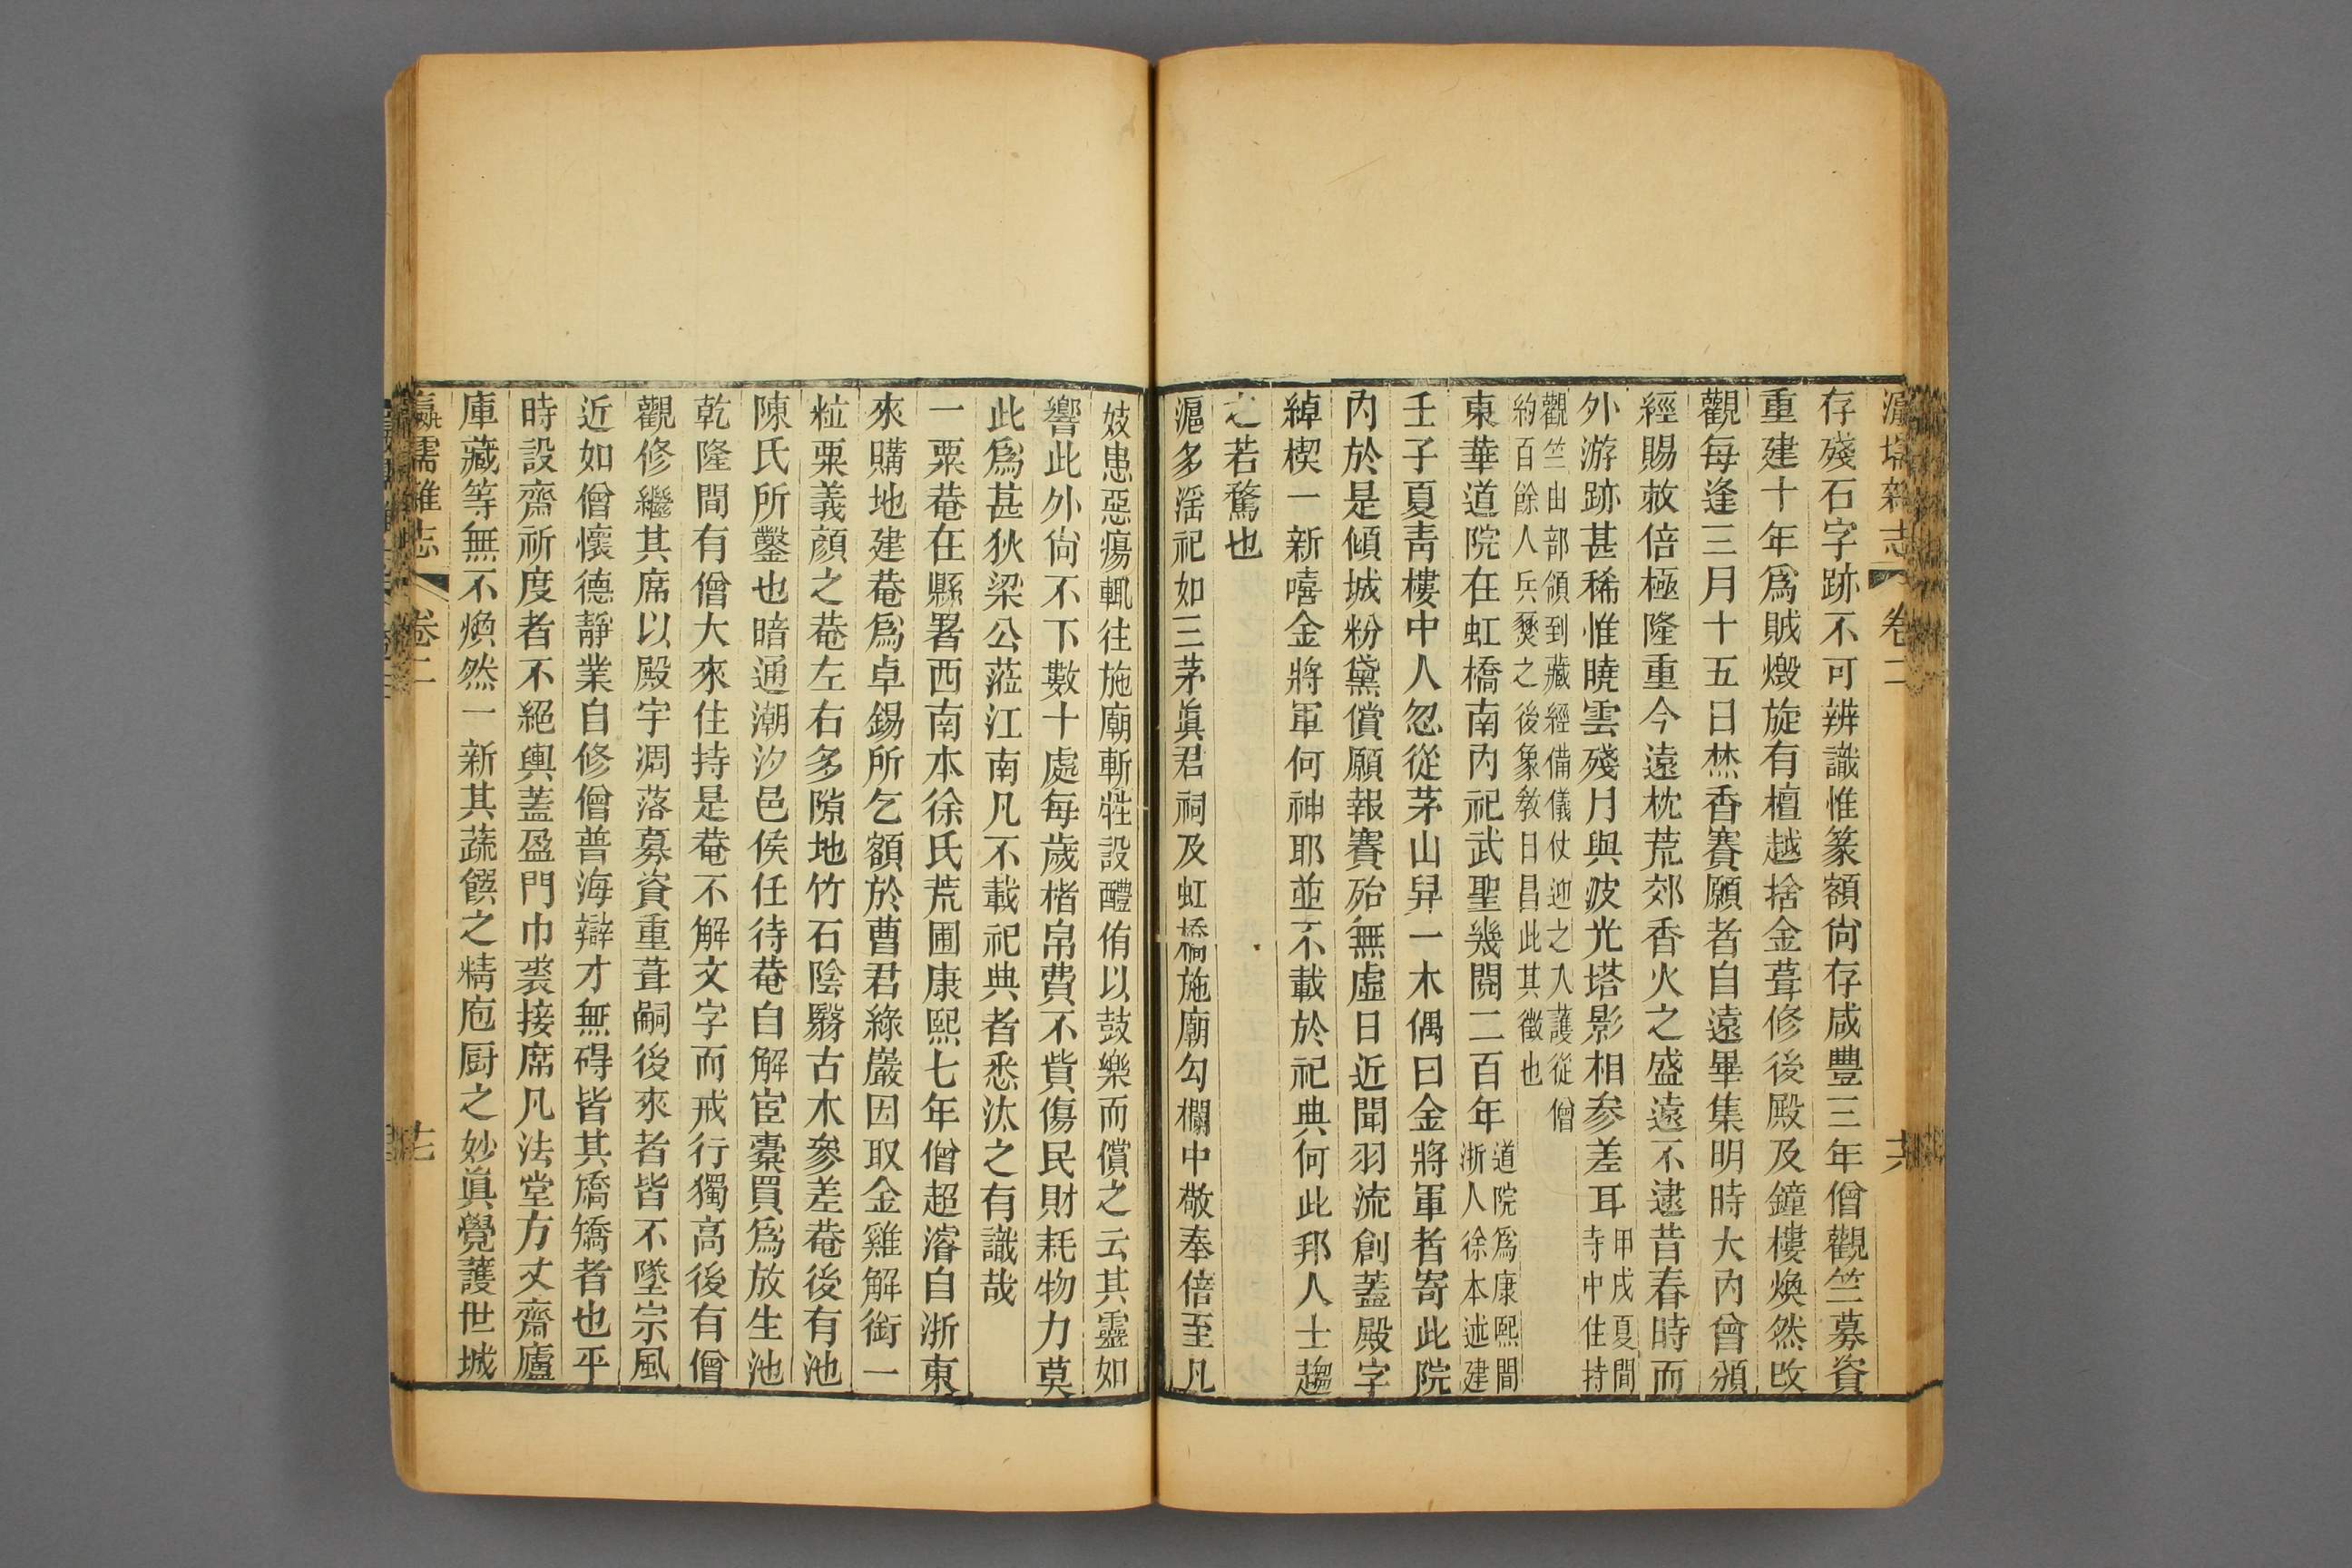 瀛壖雜志 卷二 六
存殘石字跡不可辨識惟篆額尙存咸豐三年僧觀竺募資
重建十年爲賊燬旋有檀越捨金葺修後殿及鐘樓煥然改
觀每逢三月十五日焚香賽願者自遠畢集明時大內曾頒
經賜敕倍極隆重今遠枕荒郊香火之盛遠不逮昔春時而
外游跡甚稀惟曉雲殘月與波光塔影相參差耳甲戌夏間
寺中住持
觀竺由部領到藏經備儀仗迎之入護從僧
約百餘人兵燹之後象敎日昌此其徵也
東華道院在虹橋南內祀武聖幾閱二百年道院爲康熙間
浙人徐本述建
壬子夏靑樓中人忽從茅山舁一木偶曰金將軍者寄此院
內於是傾城粉黛償願報賽殆無虛日近聞羽流創蓋殿宇
綽楔一新嘻金將軍何神耶並不載於祀典何此邦人士趨
之若鶩也
滬多淫祀如三茅眞君祠及虹橋施廟勾欄中敬奉倍至凡
妓患惡瘍輒往施廟斬牲設醴侑以鼓樂而償之云其靈如
響此外尙不下數十處每歲楮帛費不貲傷民財耗物力莫
此爲甚狄梁公蒞江南凡不載祀典者悉汰之有識哉
一粟菴在縣署西南本徐氏荒圃康熙七年僧超濬自浙東
來購地建菴爲卓錫所乞額於曹君綠巖因取金雞解銜一
粒粟義顏之菴左右多隙地竹石陰翳古木參差菴後有池
陳氏所鑿也暗通潮汐邑侯任待菴自解宦橐買爲放生池
乾隆間有僧大來住持是菴不解文字而戒行獨高後有僧
觀修繼其席以殿宇凋落募資重葺嗣後來者皆不墜宗風
近如僧懷德靜業自修僧普海辯才無碍皆其矯矯者也平
時設齋祈度者不絕輿蓋盈門巾裘接席凡法堂方丈齋廬
庫藏等無不煥然一新其蔬饌之精庖厨之妙眞覺護世城
瀛壖雜志 卷二 七